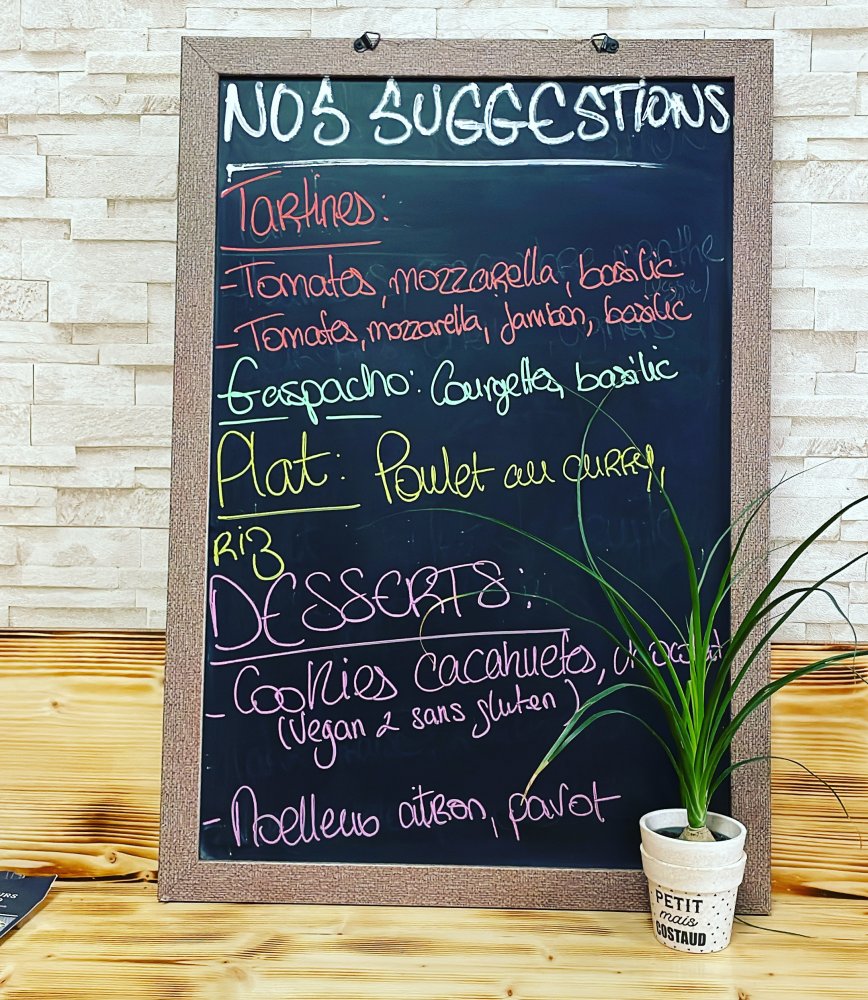 NOS SUGGESTIONS
Tartines:
-Tomates, mozzarella, basilic
-Tomates, mozzarella, jambon, basilic
Gaspacho: Courgettes, basilic
Plat: Poulet au curry,
riz
DESSERTS:
- Cookies cacahuetes, chocolat
(Vegan & sans gluten)
- Moelleux citron, pavot
PETIT
mais
COSTAUD